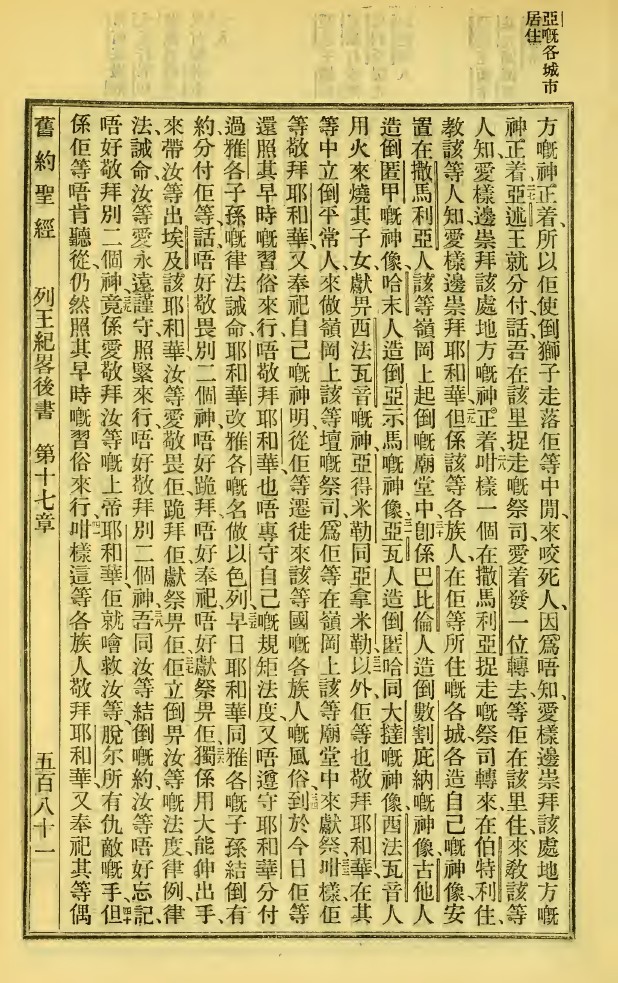 亞嘅各城市
居住
方嘅神正着所以佢使倒獅子走落佢等中閒來咬死人因爲唔知愛樣邊崇拜該處地方嘅
神正着亞述王就分付話吾在該里捉走嘅祭司愛着發一位轉去等佢在該里住來敎該等
人知愛樣邊崇拜該處地方嘅神正着咁樣一個在撒馬利亞捉走嘅祭司轉來在伯特利住
敎該等人知愛樣邊崇拜耶和華但係該等各族人在佢等所住嘅各城各造自己嘅神像安
置在撒馬利亞人該等嶺岡上起倒嘅廟堂中卽係巴比倫人造倒數割庇納嘅神像古他人
造倒匿甲嘅神像哈末人造倒亞示馬嘅神像亞瓦人造倒匿哈同大撻嘅神像西法瓦音人
用火來燒其子女獻畀西法瓦音嘅神亞得米勒同亞拿米勒以外佢等也敬拜耶和華在其
等中立倒平常人來做嶺岡上該等壇嘅祭司爲佢等在嶺岡上該等廟堂中來獻祭咁樣佢
等敬拜耶和華又奉祀自己嘅神明從佢等遷徒來該等國嘅各族人嘅風俗到於今日佢等
還照其早時嘅習俗來行唔敬拜耶和華也唔專守自己嘅規矩法度又唔遵守耶和華分付
過雅各子孫嘅律法誡命耶和華改雅各嘅名做以色列早日耶和華同雅各嘅子孫結倒有
約分付佢等話唔好敬畏別二個神唔好跪拜唔好奉祀唔好獻祭畀佢獨係用大能伸出手
來帶汝等出埃及該耶和華汝等愛敬畏佢跪拜佢獻祭畀佢佢立倒畀汝等嘅法度律例律
法誡命汝等愛永遠謹守照緊來行唔好敬拜別二個神吾同汝等結倒嘅約汝等唔好忘記
唔好敬拜別二個神竟係愛敬拜汝等嘅上帝耶和華佢就噲救汝等脫尔所有仇敵嘅手但
係佢等唔肯聽從仍然照其早時嘅習俗來行咁樣這等各族人敬拜耶和華又奉祀其等偶
舊約聖經 列王紀畧後書 第十七章 五百八十一